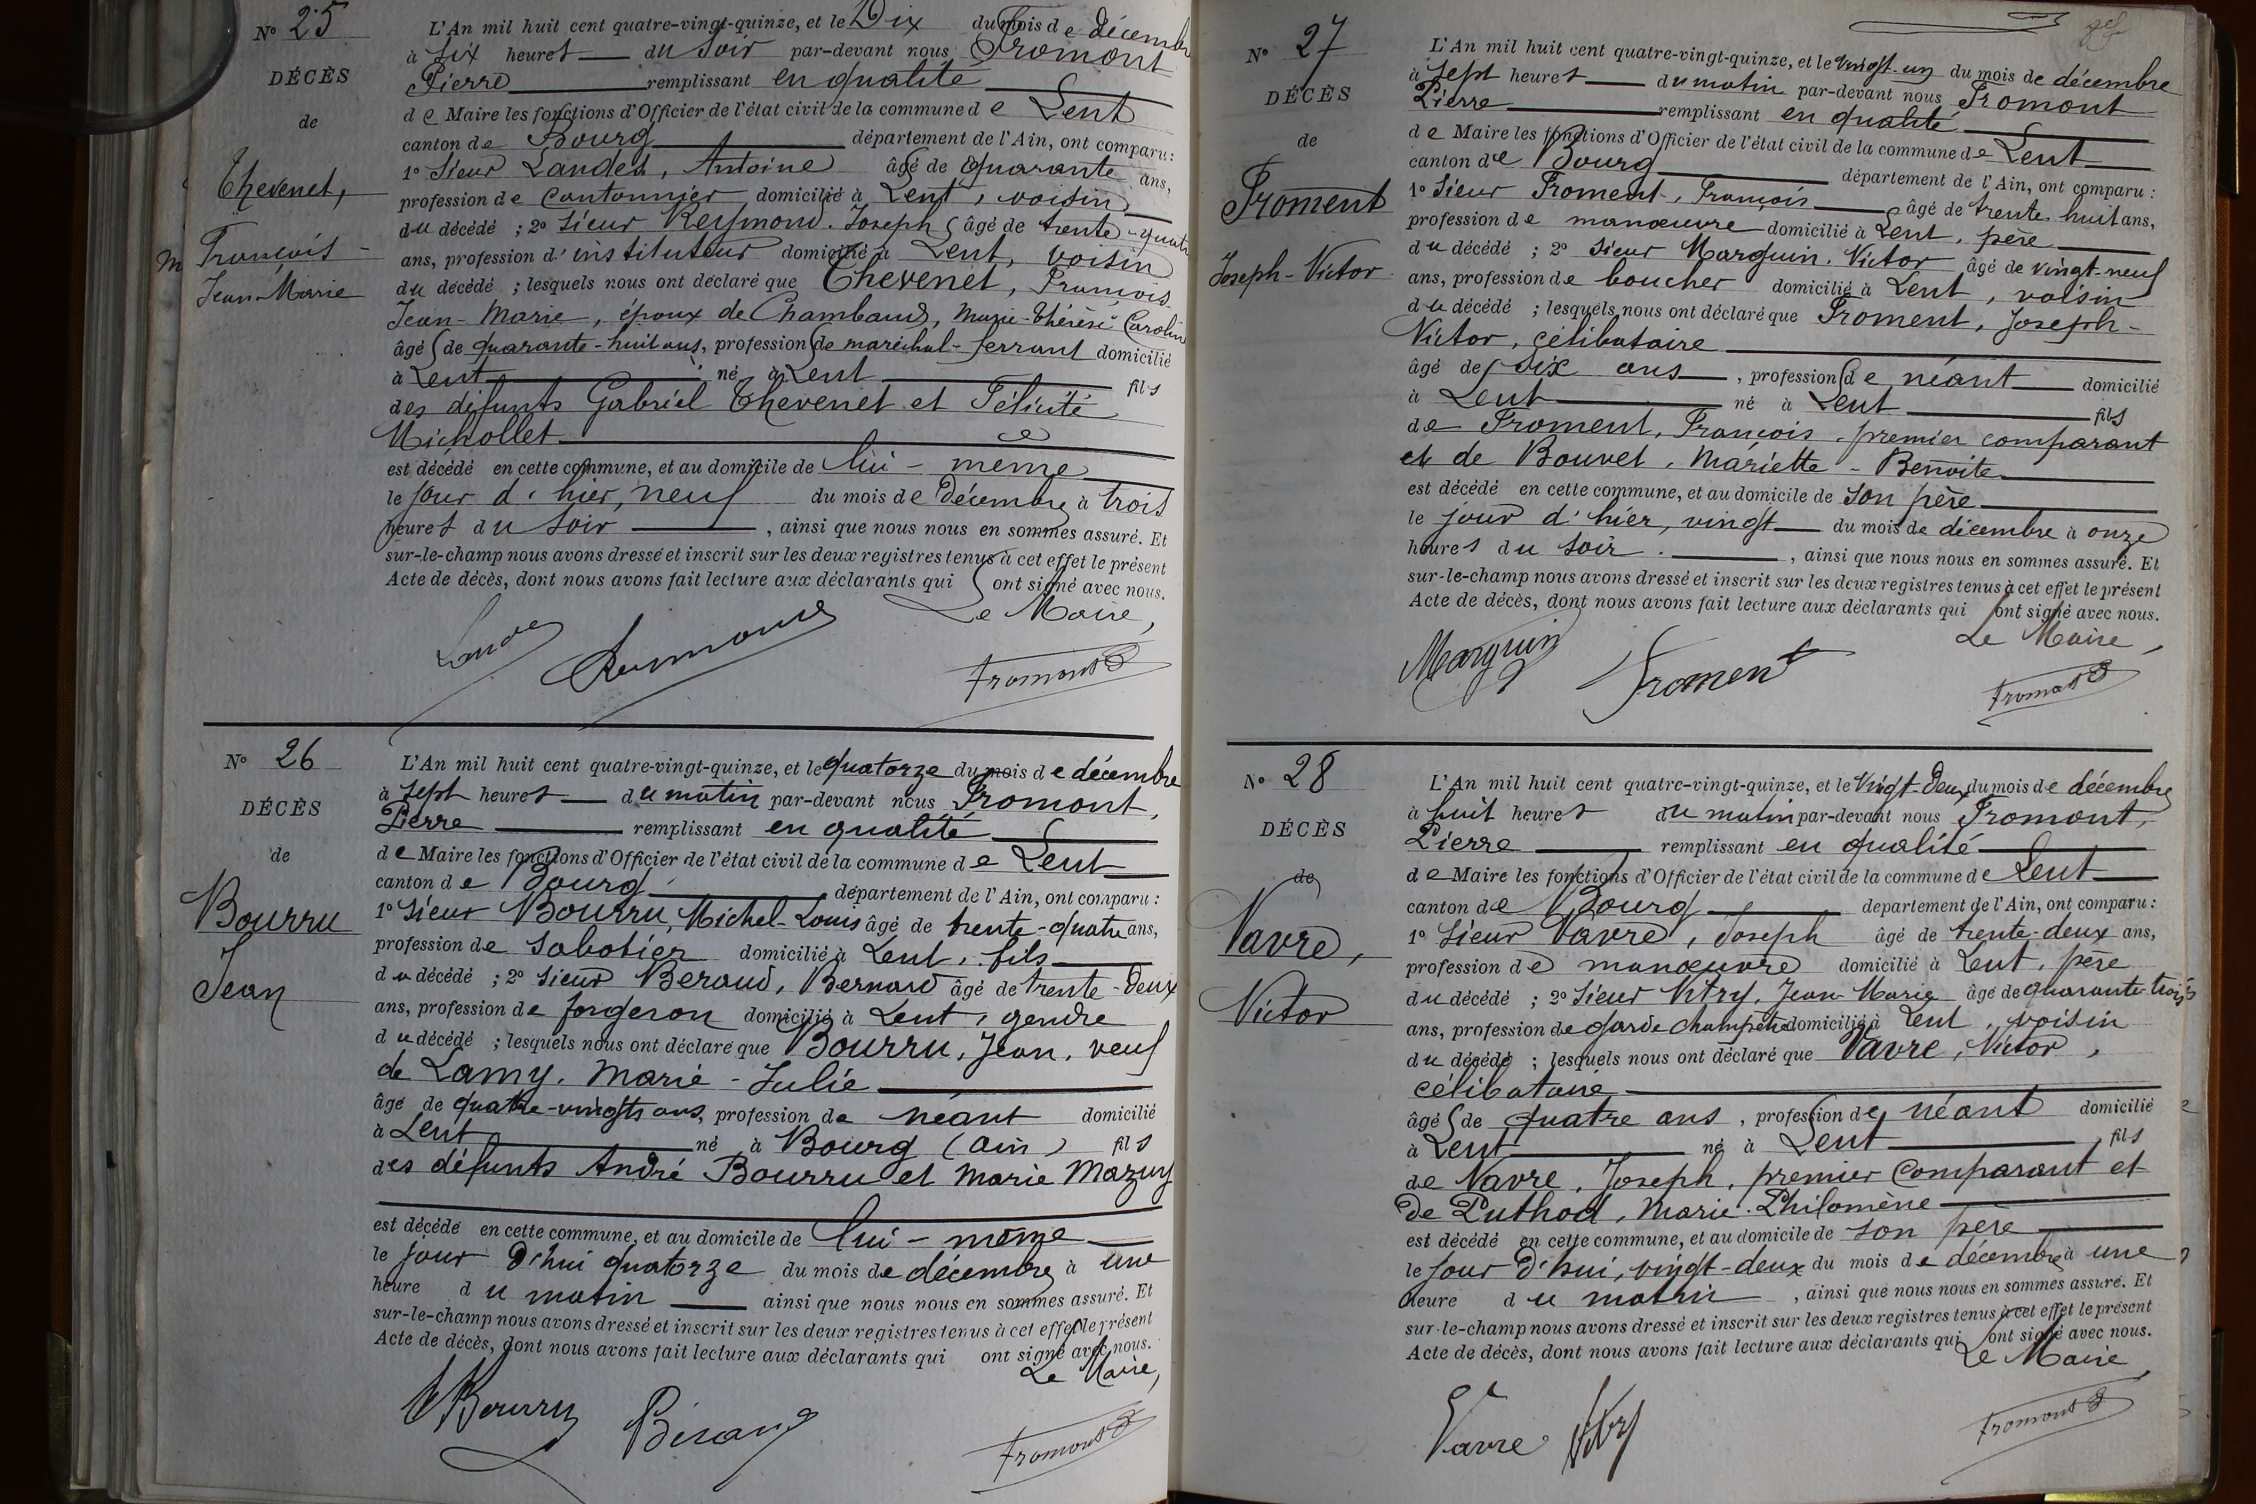 N° 25
DÉCÈS
de
Thevenet,
François
Jean-Marie
L'An mil huit cent quatre-vingt-quinze, et le Dix du mois de décembre
à six heures du soir par-devant nous Fromont
Pierre remplissant en qualité
de Maire les fonctions d'Officier de l'état civil de la commune de Lent
canton de Bourg département de l'Ain, ont comparu :
1° Sieur Landes, Antoine âgé de quarante ans,
profession de cantonnier domicilié à Lent, voisin
du décédé ; 2° sieur Reymond. Joseph âgé de trente-quatre
ans, profession d'instituteur domicilié à Lent, voisin
du décédé ; lesquels nous ont déclaré que Thevenet, François
Jean-Marie, époux de Chambaud, Marie-Thérèse Caroline
âgé de quarante-huit ans, profession de maréchal-ferrant domicilié
à Lent né à Lent fils
des défunts Gabriel Thevenet et Félicité
Michollet
est décédé en cette commune, et au domicile de lui-même
le jour d'hier, neuf du mois de décembre à trois
heures du soir, ainsi que nous nous en sommes assuré. Et
sur-le-champ nous avons dressé et inscrit sur les deux registres tenus à cet effet le présent
Acte de décès, dont nous avons fait lecture aux déclarants qui ont signé avec nous.
Le Maire,
Landes Reymond Fromont
N° 26
DÉCÈS
de
Bourru
Jean
L'An mil huit cent quatre-vingt-quinze, et le quatorze du mois de décembre
à sept heures du matin par-devant nous Fromont,
Pierre remplissant en qualité
de Maire les fonctions d'Officier de l'état civil de la commune de Lent
canton de Bourg département de l'Ain, ont comparu :
1° sieur Bourru, Michel-Louis âgé de trente-quatre ans,
profession de sabotier domicilié à Lent, fils
du décédé ; 2° sieur Beraud, Bernard âgé de trente-deux
ans, profession de forgeron domicilié à Lent, gendre
du décédé ; lesquels nous ont déclaré que Bourru, Jean, veuf
de Lamy. Marie-Julie
âgé de quatre-vingts ans, profession de néant domicilié
à Lent né à Bourg (Ain) fils
des défunts André Bourru et Marie Mazuy
est décédé en cette commune, et au domicile de lui-même
le jour d'hui quatorze du mois de décembre à une
heure du matin ainsi que nous nous en sommes assuré. Et
sur-le-champ nous avons dressé et inscrit sur les deux registres tenus à cet effet le présent
Acte de décès, dont nous avons fait lecture aux déclarants qui ont signé avec nous.
Le Maire,
Bourru Béraud Fromont
N° 27
DÉCÈS
de
Froment
Joseph-Victor
L'An mil huit cent quatre-vingt-quinze, et le vingt-un du mois de décembre
à sept heures du matin par-devant nous Fromont
Pierre remplissant en qualité
de Maire les fonctions d'Officier de l'état civil de la commune de Lent
canton de Bourg département de l'Ain, ont comparu :
1° Sieur Froment, François âgé de trente-huit ans,
profession de manœuvre domicilié à Lent, père
du décédé ; 2° sieur Marguin. Victor âgé de vingt-neuf
ans, profession de boucher domicilié à Lent, voisin
du décédé ; lesquels nous ont déclaré que Froment, Joseph-
Victor, célibataire
âgé de six ans, profession de néant domicilié
à Lent né à Lent fils
de Froment, François, premier comparant
et de Bouvet, Mariette-Benoite
est décédé en cette commune, et au domicile de son père
le jour d'hier, vingt du mois de décembre à onze
heures du soir, ainsi que nous nous en sommes assuré. Et
sur-le-champ nous avons dressé et inscrit sur les deux registres tenus à cet effet le présent
Acte de décès, dont nous avons fait lecture aux déclarants qui ont signé avec nous.
Le Maire,
Marguin Froment Fromont
N° 28
DÉCÈS
de
Vavre,
Victor
L'An mil huit cent quatre-vingt-quinze, et le Vingt-Deux du mois de décembre
à huit heures du matin par-devant nous Fromont,
Pierre remplissant en qualité
de Maire les fonctions d'Officier de l'état civil de la commune de Lent
canton de Bourg département de l'Ain, ont comparu :
1° Sieur Vavre, Joseph âgé de trente-deux ans,
profession de manœuvre domicilié à Lent, père
du décédé ; 2° Sieur Vitry, Jean-Marie âgé de quarante-trois
ans, profession de garde champêtre domicilié à Lent, voisin
du décédé ; lesquels nous ont déclaré que Vavre, Victor,
célibataire
âgé de quatre ans, profession de néant domicilié
à Lent né à Lent, fils
de Vavre, Joseph, premier comparant et
de Puthod, Marie-Philomène
est décédé en cette commune, et au domicile de son père
le jour d'hui, vingt-deux du mois de décembre à une
heure du matin, ainsi que nous nous en sommes assuré. Et
sur-le-champ nous avons dressé et inscrit sur les deux registres tenus à cet effet le présent
Acte de décès, dont nous avons fait lecture aux déclarants qui ont signé avec nous.
Le Maire
Vavre Vitry Fromont